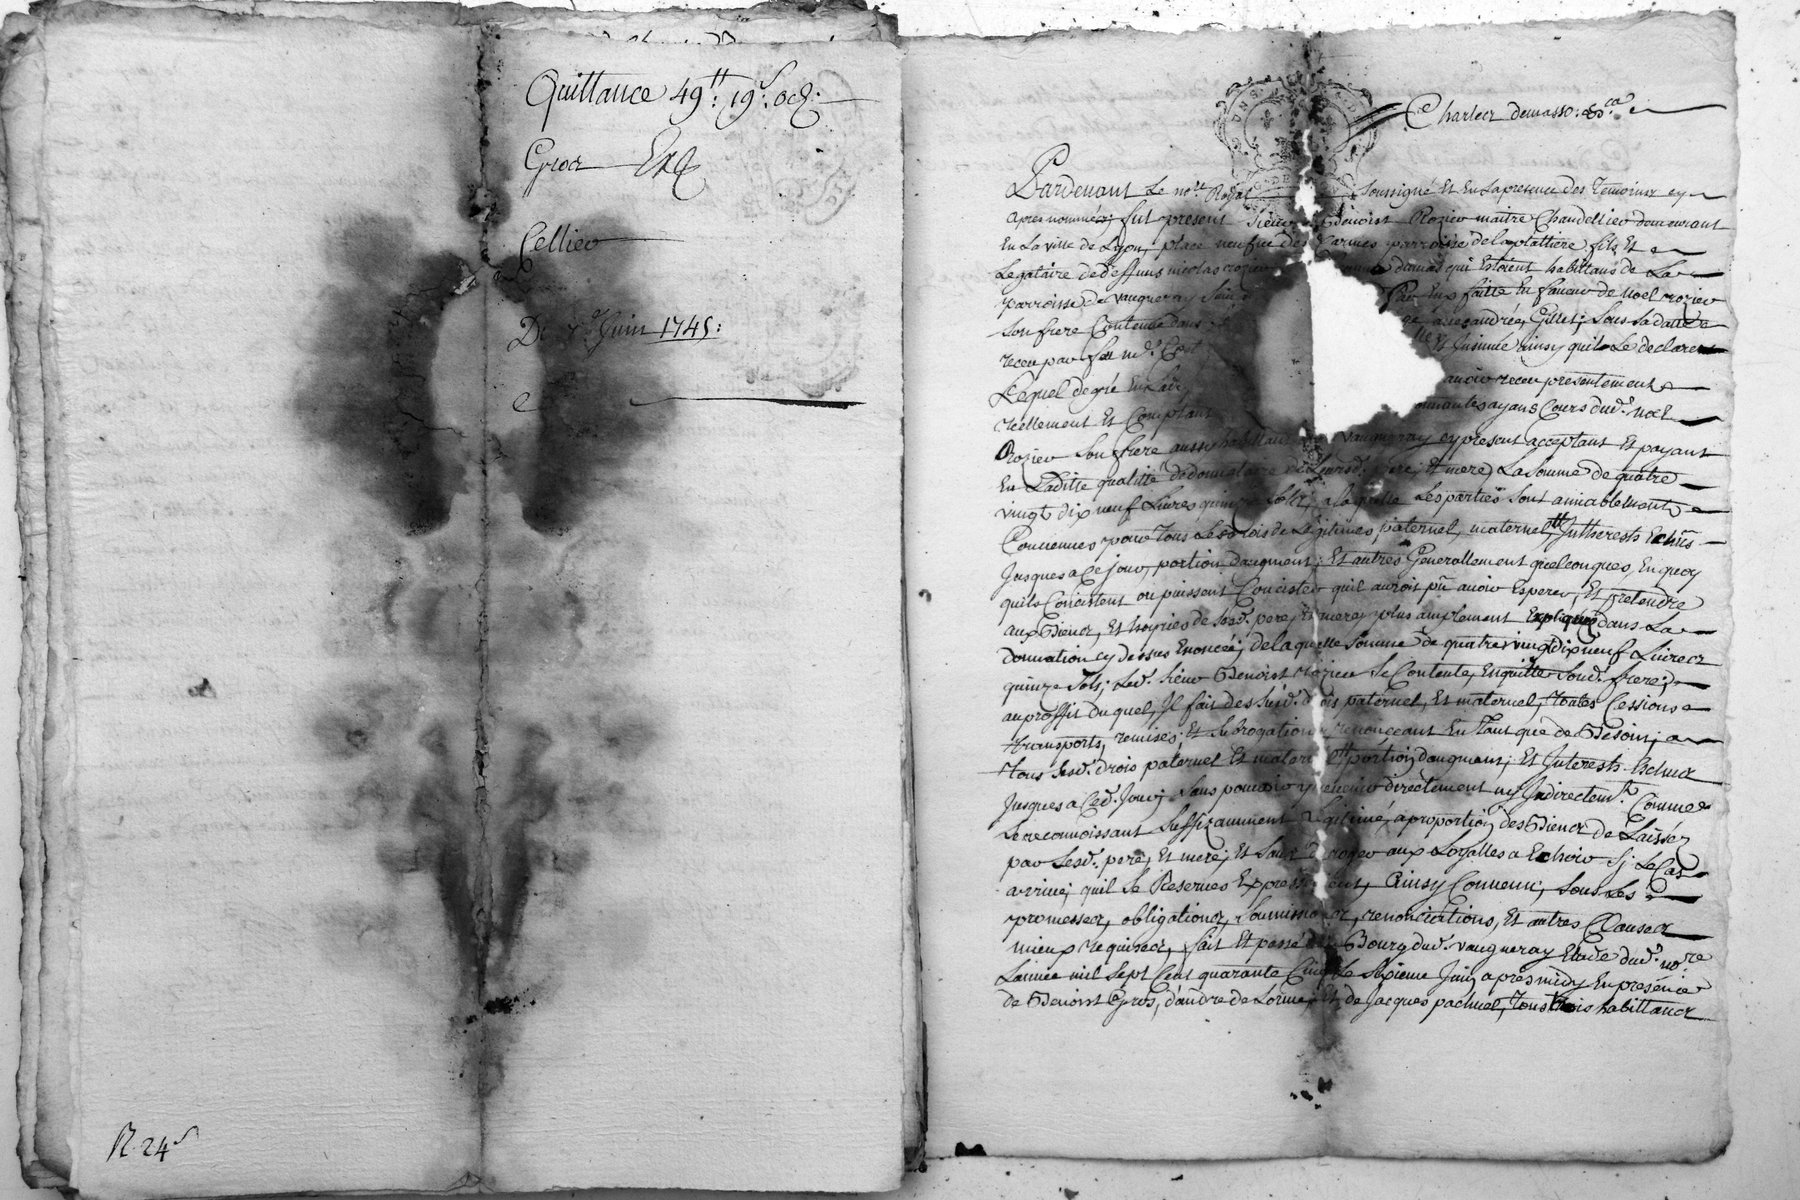 Quittance 49tt: 19s: 08d:
Gros
Cellier
Du 7e Juin 1745:
R. 24s
Charles demasso: &ca
Pardevant Le nore Royal soussigné Et En La presence des Temoins cy
apres nommés; fut present Sieur Benoist Rozier maitre Chandellier demeurant
En La ville de Lyon, place neufve des Carmes parroisse de la plattiere fils Et
Legataire de deffunts nicolas rozier dumas qui Etoient habittans de La
parroisse de vaugneray Par Eux faitte En faveur de noel rozier
son frere Contenue dans alexandrée, Gillet; sous sa datte
receu par Insinué ainsy quil Le declare
Lequel de gré avoir receu presentement
reellement Et Comptant ayans Cours dud. noel
Rozier son frere aussy habittant vaugneray cy present acceptant Et payant
En Laditte qualitté de donnataire de Leursd. pere, Et mere, La somme de quatre
vingt dix neuf Livres quinze sols; a laquelle Les parties sont amiablement
Convenues pour tous Les drois de Legitimes paternel, maternel, Intherests Echus
Jusques a Ce jour, portion daugment; Et autres Generallement quelconques, En quoy
quils Consistent ou puissent Consister quil auroit pû avoir Esperer, Et pretendre
aux Biens, Et hoyries de sesd. pere, Et mere, plus amplement Expliqués dans La
donnation cy dessus Enoncée; de laquelle somme de quatre vingt dix neuf Livres
quinze sols; Led. sieur Benoist rozier se Contente, En quitte sond. frere;
au proffit duquel, Il fait des susd. drois paternel, Et maternel, toutes Cessions
transports, remises; Et subrogations renonceant En tant que de Besoin; a
tous sesd. drois paternel Et maternel portion daugment; Et Interests Echus
Jusques a Ced. Jour; sans pouvoir y revenir directement ny Indirectemt. Comme
Le reconnoissant suffizamment Legitimé, a proportion des Biens de Laissés
par sesd. pere, Et mere; Et sans deroger aux Loyalles a Echoir sj Le Cas
arrive; quil se Reserves Expressement, Ainsy Convenu, sous Les
promesses, obligations, soumissions, renonciations, Et autres Clauses
mieux requises, fait Et passé Bourg dud. vaugneray Etude dud. nore
Lannée mil sept Cent quarante Cinq Le septieme Juin apres midy En presence
de Benoist Gros, d'andre de Lorme, Et de Jacques pachuel, tous trois habittans